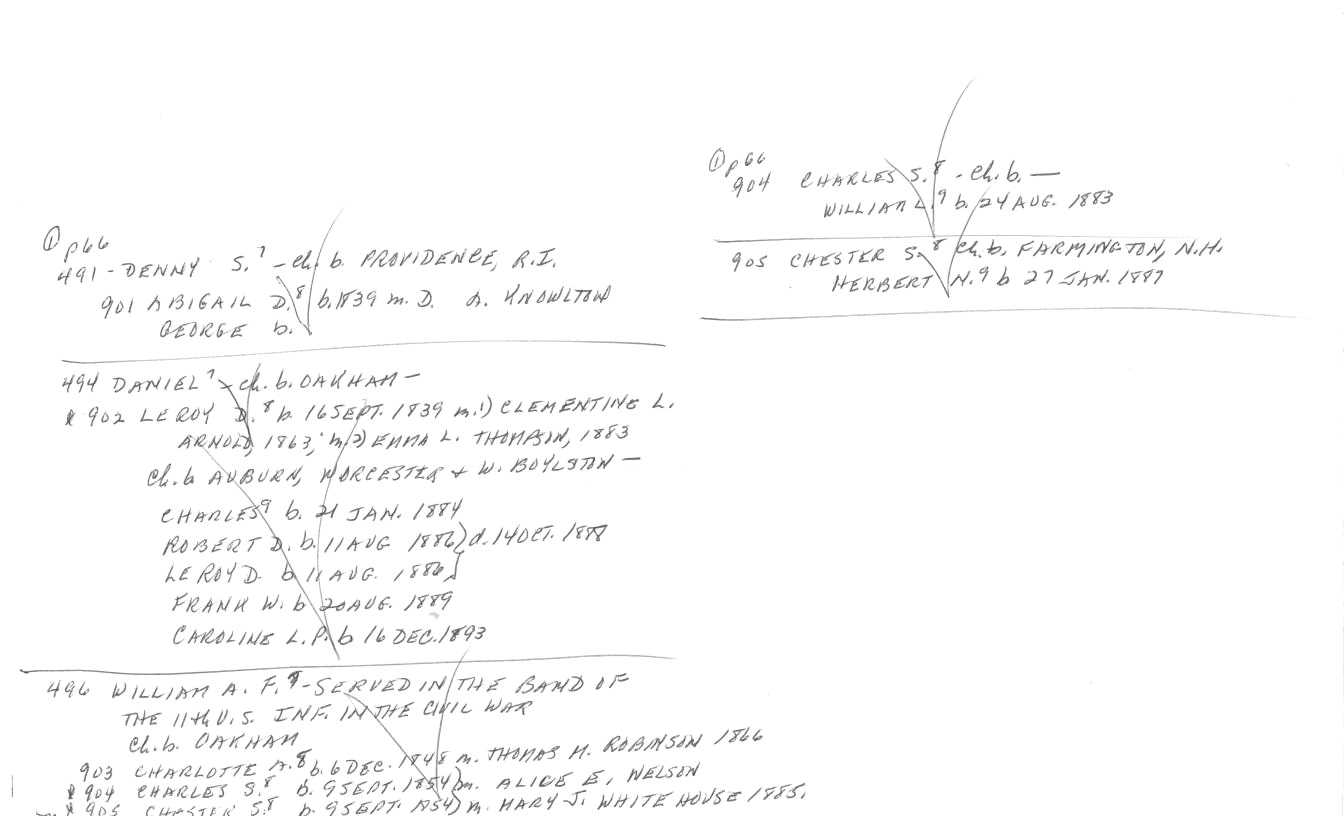 ① p66
491 - DENNY S.⁷ - ch. b. PROVIDENCE, R.I.
901 ABIGAIL D.⁸ b. 1839 m. D. A. KNOWLTON
GEORGE b.
494 DANIEL⁷ - ch. b. OAKHAM -
* 902 LEROY D.⁸ b. 16 SEPT. 1839 m. 1) CLEMENTINE L.
ARNOLD, 1863; m. 2) EMMA L. THOMPSON, 1883
Ch. b AUBURN, WORCESTER + W. BOYLSTON -
CHARLES⁹ b. 21 JAN. 1884
ROBERT D. b. 11 AUG 1886 } d. 14 OCT. 1888
LEROY D. b 11 AUG. 1886 }
FRANK W. b 20 AUG. 1889
CAROLINE L. P. b 16 DEC. 1893
496 WILLIAM A. F. - SERVED IN THE BAND OF
THE 11th U.S. INF. IN THE CIVIL WAR
Ch. b. OAKHAM
903 CHARLOTTE A.⁸ b. 6 DEC. 1848 m. THOMAS M. ROBINSON 1866
* 904 CHARLES S.⁸ b. 9 SEPT. 1854 } m. ALICE E. NELSON
* 905 CHESTER S.⁸ b. 9 SEPT. 1854 } m. MARY J. WHITEHOUSE 1885.
① p66
904 CHARLES S.⁸ - Ch. b. —
WILLIAM L.⁹ b. 24 AUG. 1883
905 CHESTER S.⁸ Ch. b. FARMINGTON, N.H.
HERBERT N.⁹ b 27 JAN. 1887